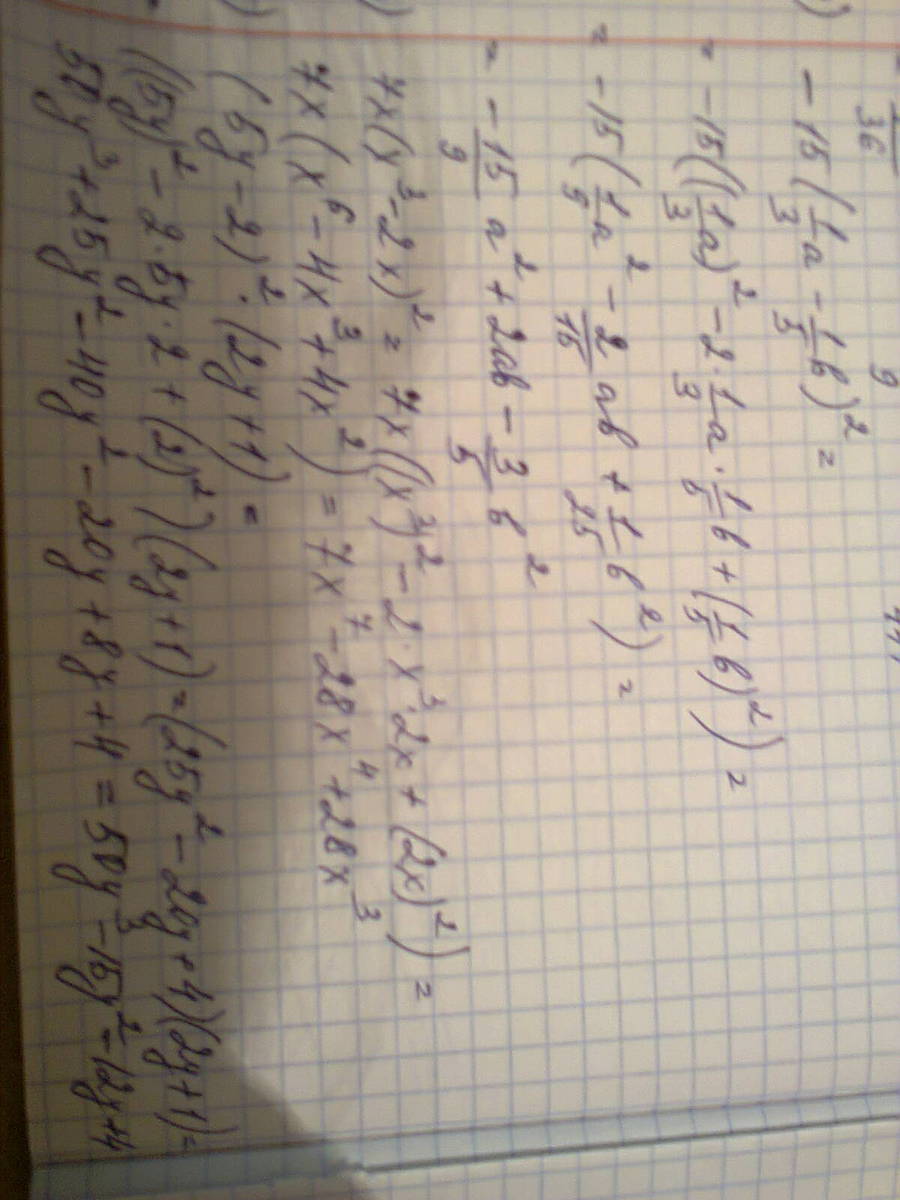 36 9
- 15 (1/3 a - 1/5 b)² =
= -15((1/3 a)² - 2 · 1/3 a · 1/5 b + (1/5 b)²) =
= -15(1/9 a² - 2/15 ab + 1/25 b²) =
= - 15/9 a² + 2ab - 3/5 b²
7x(x³-2x)² = 7x((x³)² - 2 · x³ · 2x + (2x)²) =
7x(x⁶ - 4x³ + 4x²) = 7x⁷ - 28x⁴ + 28x³
(5y - 2)² · (2y + 1) =
((5y)² - 2 · 5y · 2 + (2)²)(2y + 1) = (25y² - 20y + 4)(2y + 1) =
50y³ + 25y² - 40y² - 20y + 8y + 4 = 50y³ - 15y² - 12y + 4